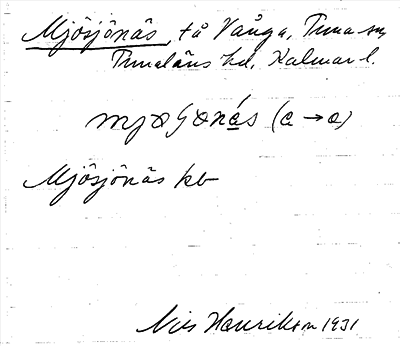 Mjösjönäs, tå Vånga, Tuna sn,
Tunaläns hd, Kalmar l.
Mjösjönäs kb
Nils Henrikson 1931